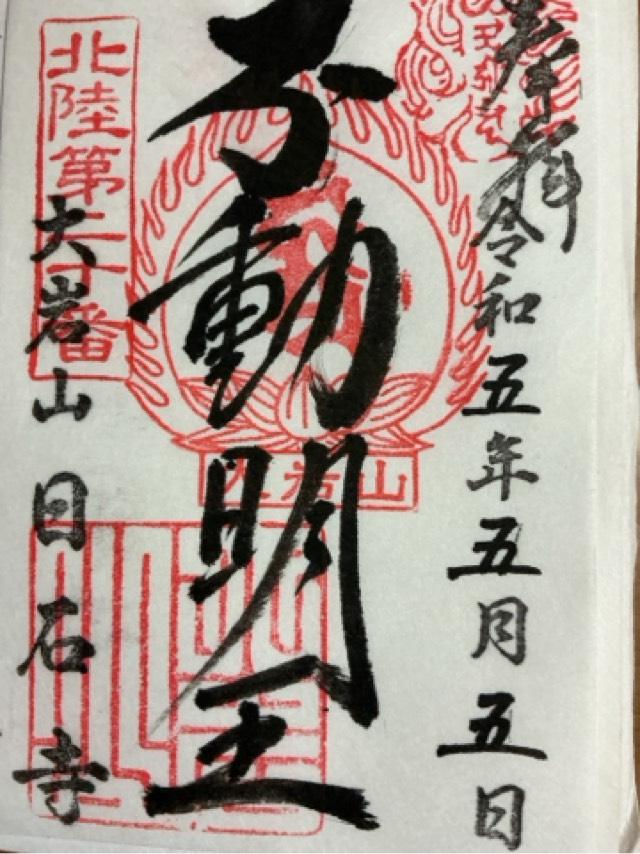 奉拝
令和五年五月五日
不動明王
大岩山
北陸第二十番
大岩山
日石寺